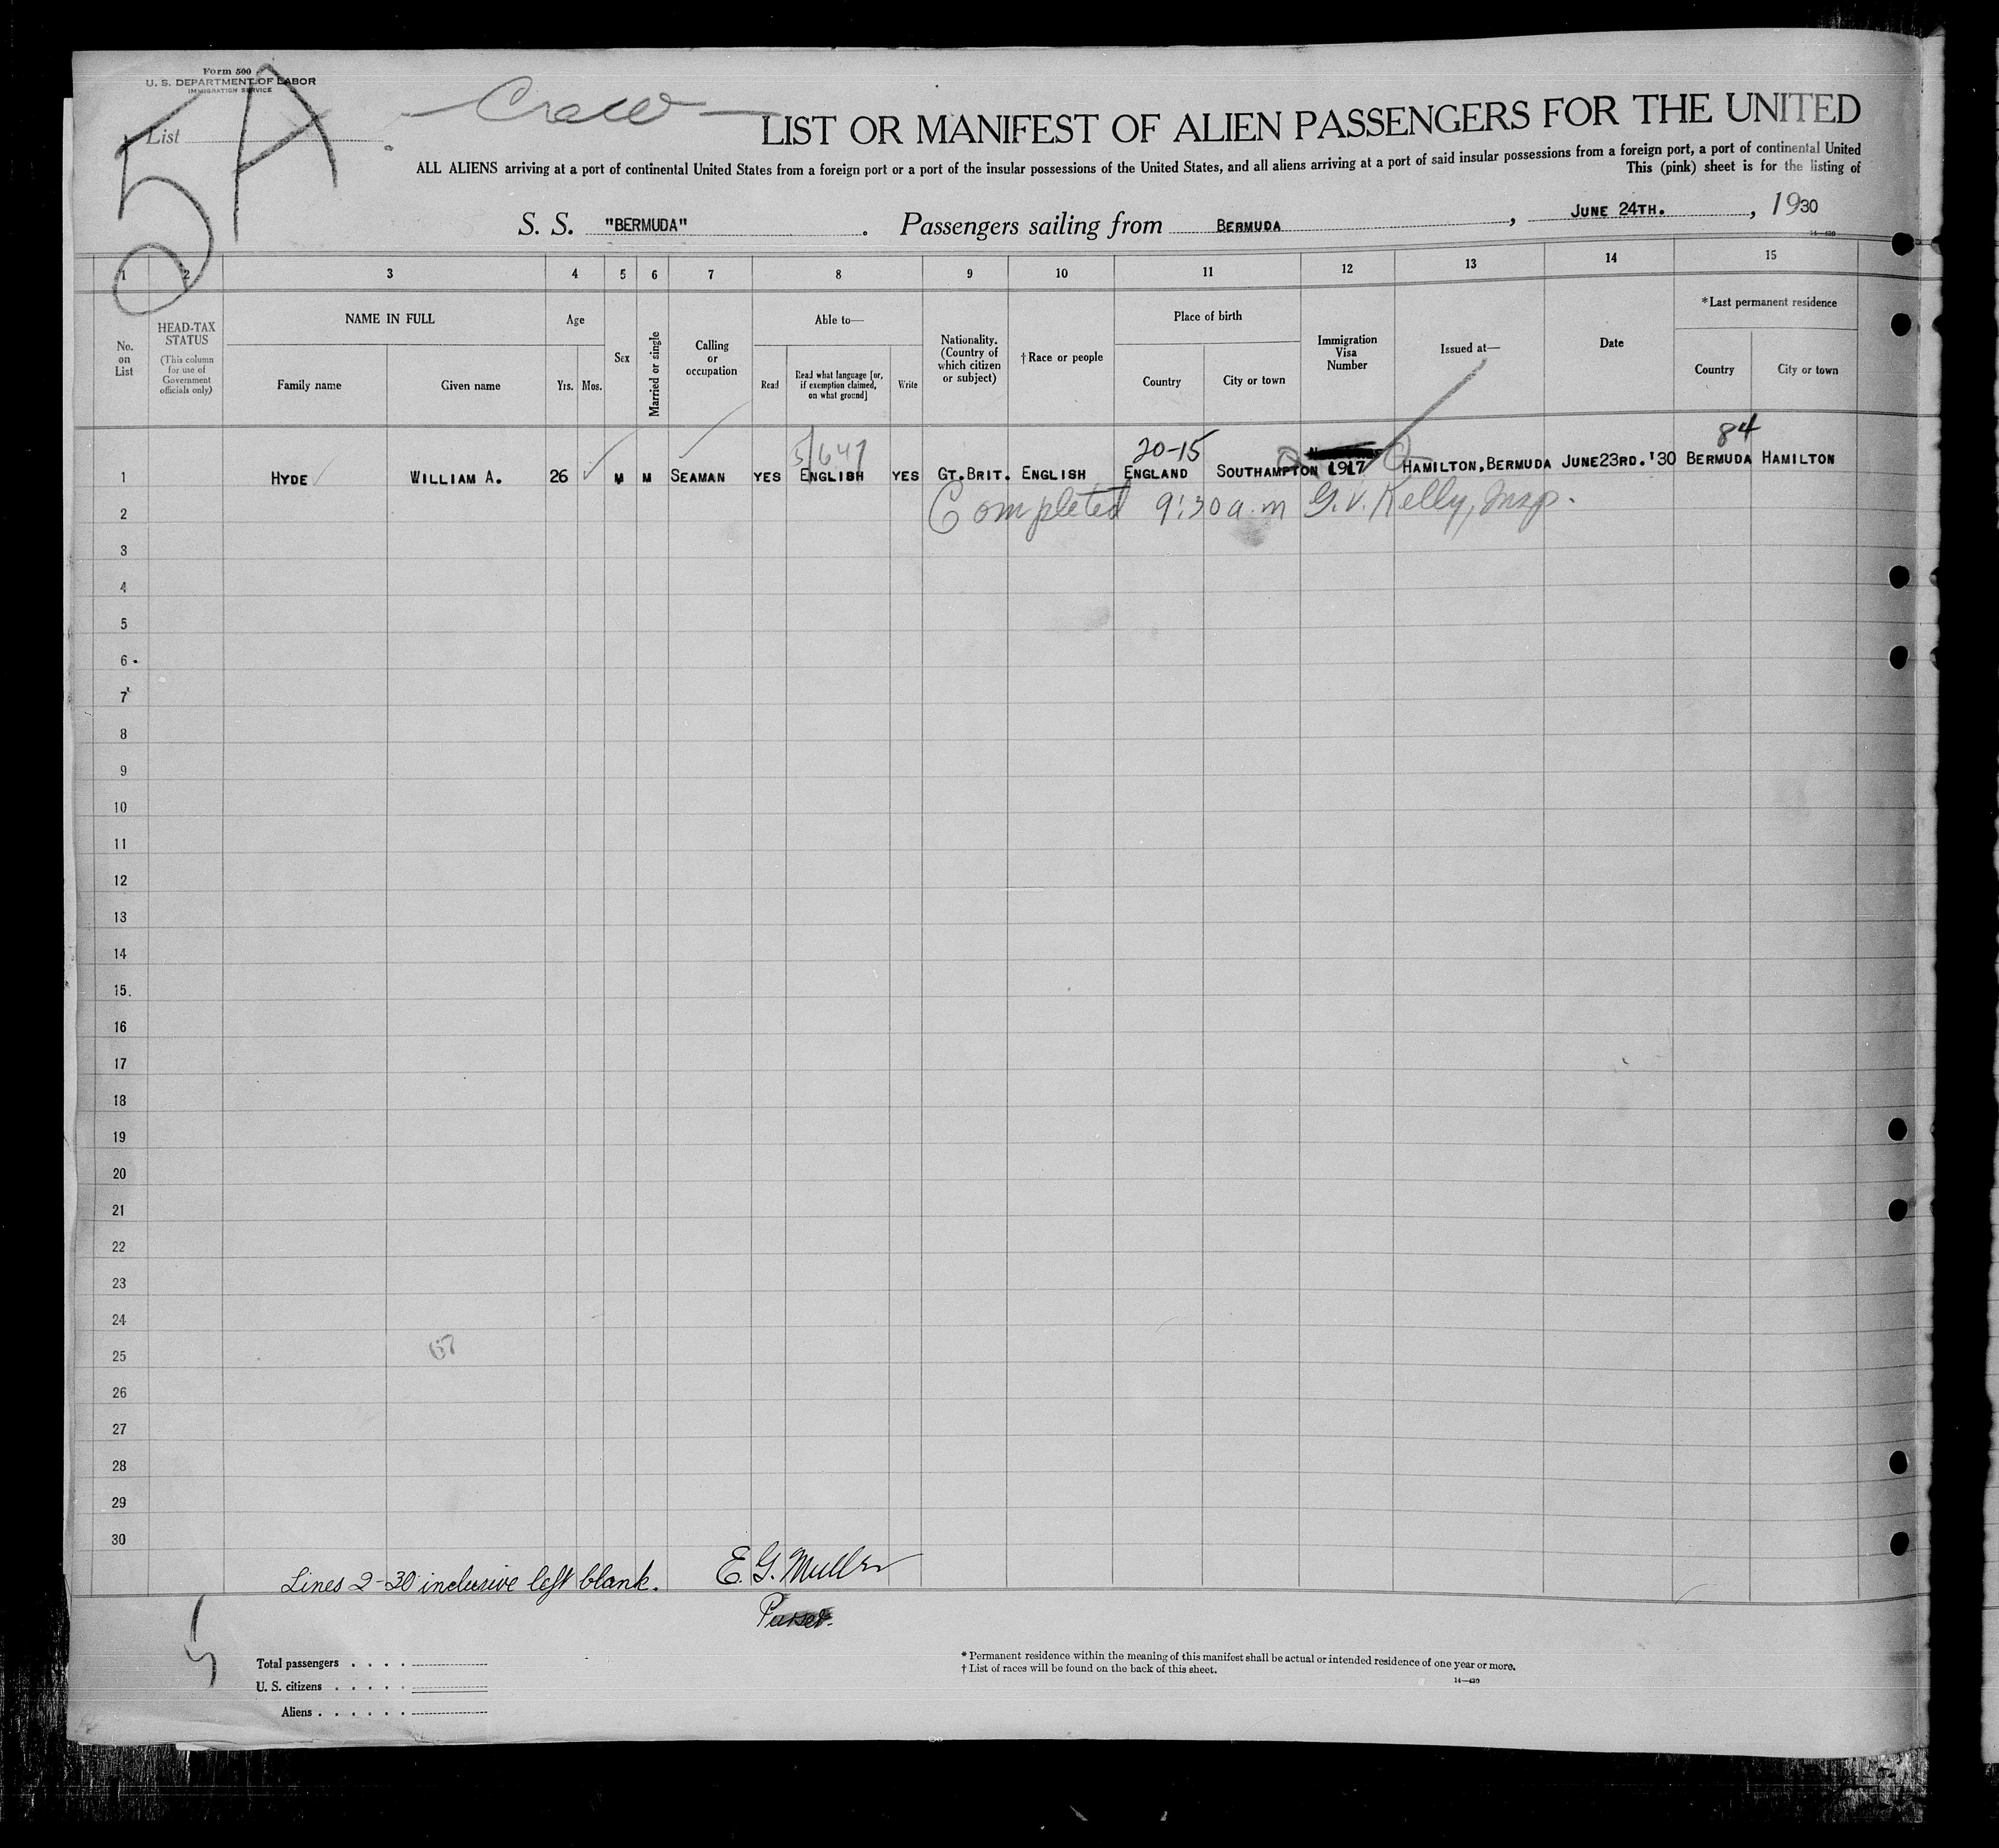 Form 500
U. S. DEPARTMENT OF LABOR
IMMIGRATION SERVICE
5A
List
Crew
LIST OR MANIFEST OF ALIEN PASSENGERS FOR THE UNITED
ALL ALIENS arriving at a port of continental United States from a foreign port or a port of the insular possessions of the United States, and all aliens arriving at a port of said insular possessions from a foreign port, a port of continental United
This (pink) sheet is for the listing of
S. S. "BERMUDA". Passengers sailing from BERMUDA, JUNE 24TH., 1930
14—430
1 2 3 4 5 6 7 8 9 10 11 12 13 14 15
No. on List
HEAD-TAX STATUS
(This column for use of Government officials only)
NAME IN FULL
Family name Given name
Age
Yrs. Mos.
Sex
Married or single
Calling or occupation
Able to—
Read
Read what language [or, if exemption claimed, on what ground]
Write
Nationality. (Country of which citizen or subject)
† Race or people
Place of birth
Country City or town
Immigration Visa Number
Issued at—
Date
* Last permanent residence
Country City or town
5/647 20-15 84
1 HYDE WILLIAM A. 26 M M SEAMAN YES ENGLISH YES GT.BRIT. ENGLISH ENGLAND SOUTHAMPTON 1917 HAMILTON, BERMUDA JUNE23RD.'30 BERMUDA HAMILTON
2 Completed 9:30 a.m G.V. Kelly, Insp.
3
4
5
6
7
8
9
10
11
12
13
14
15
16
17
18
19
20
21
22
23
24
25
26
27
28
29
30
Lines 2-30 inclusive left blank. E. G. Muller
Purser.
Total passengers
U. S. citizens
Aliens
* Permanent residence within the meaning of this manifest shall be actual or intended residence of one year or more.
† List of races will be found on the back of this sheet.
14—430